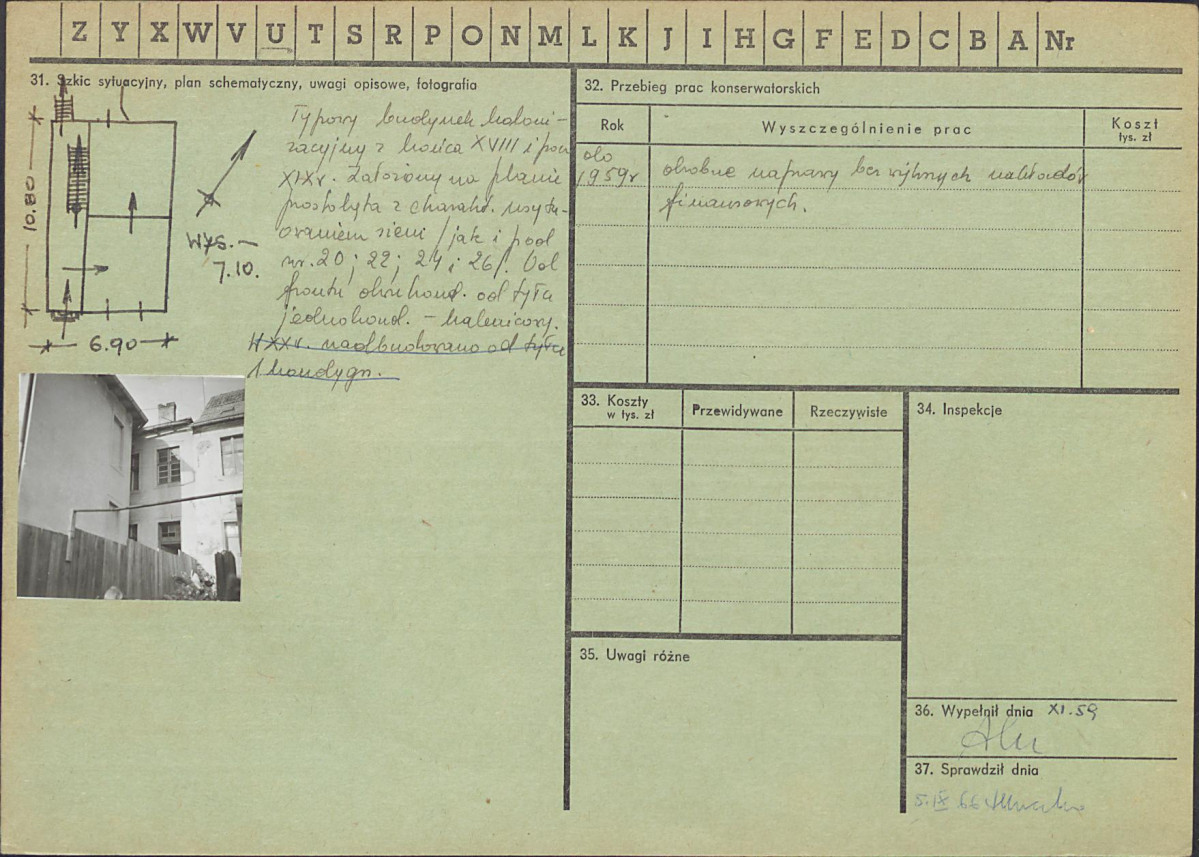 Z Y X W V U T S R P O N M L K J I H G F E D C B A Nr
31. Szkic sytuacyjny, plan schematyczny, uwagi opisowe, fotografia
10.80
6.90
WYS. —
7.10.
Typowy budynek koloni-
zacyjny z końca XVIII i pocz
XIXw. Założony na planie
prostokąta z charakt. usytu-
owaniem sieni /jak i pod
nr. 20; 22; 24 i 26/. Od
frontu dwukond. od tyłu
jednokond. – kalenicowy.
W XXw. nadbudowano od tyłu
1 kondygn.
32. Przebieg prac konserwatorskich
Rok
Wyszczególnienie prac
Koszt
tys. zł
do
1959r
drobne naprawy bez nakładów
finansowych.
33. Koszty
w tys. zł
Przewidywane
Rzeczywiste
34. Inspekcje
35. Uwagi różne
36. Wypełnił dnia XI.59
37. Sprawdził dnia
5.IX 66